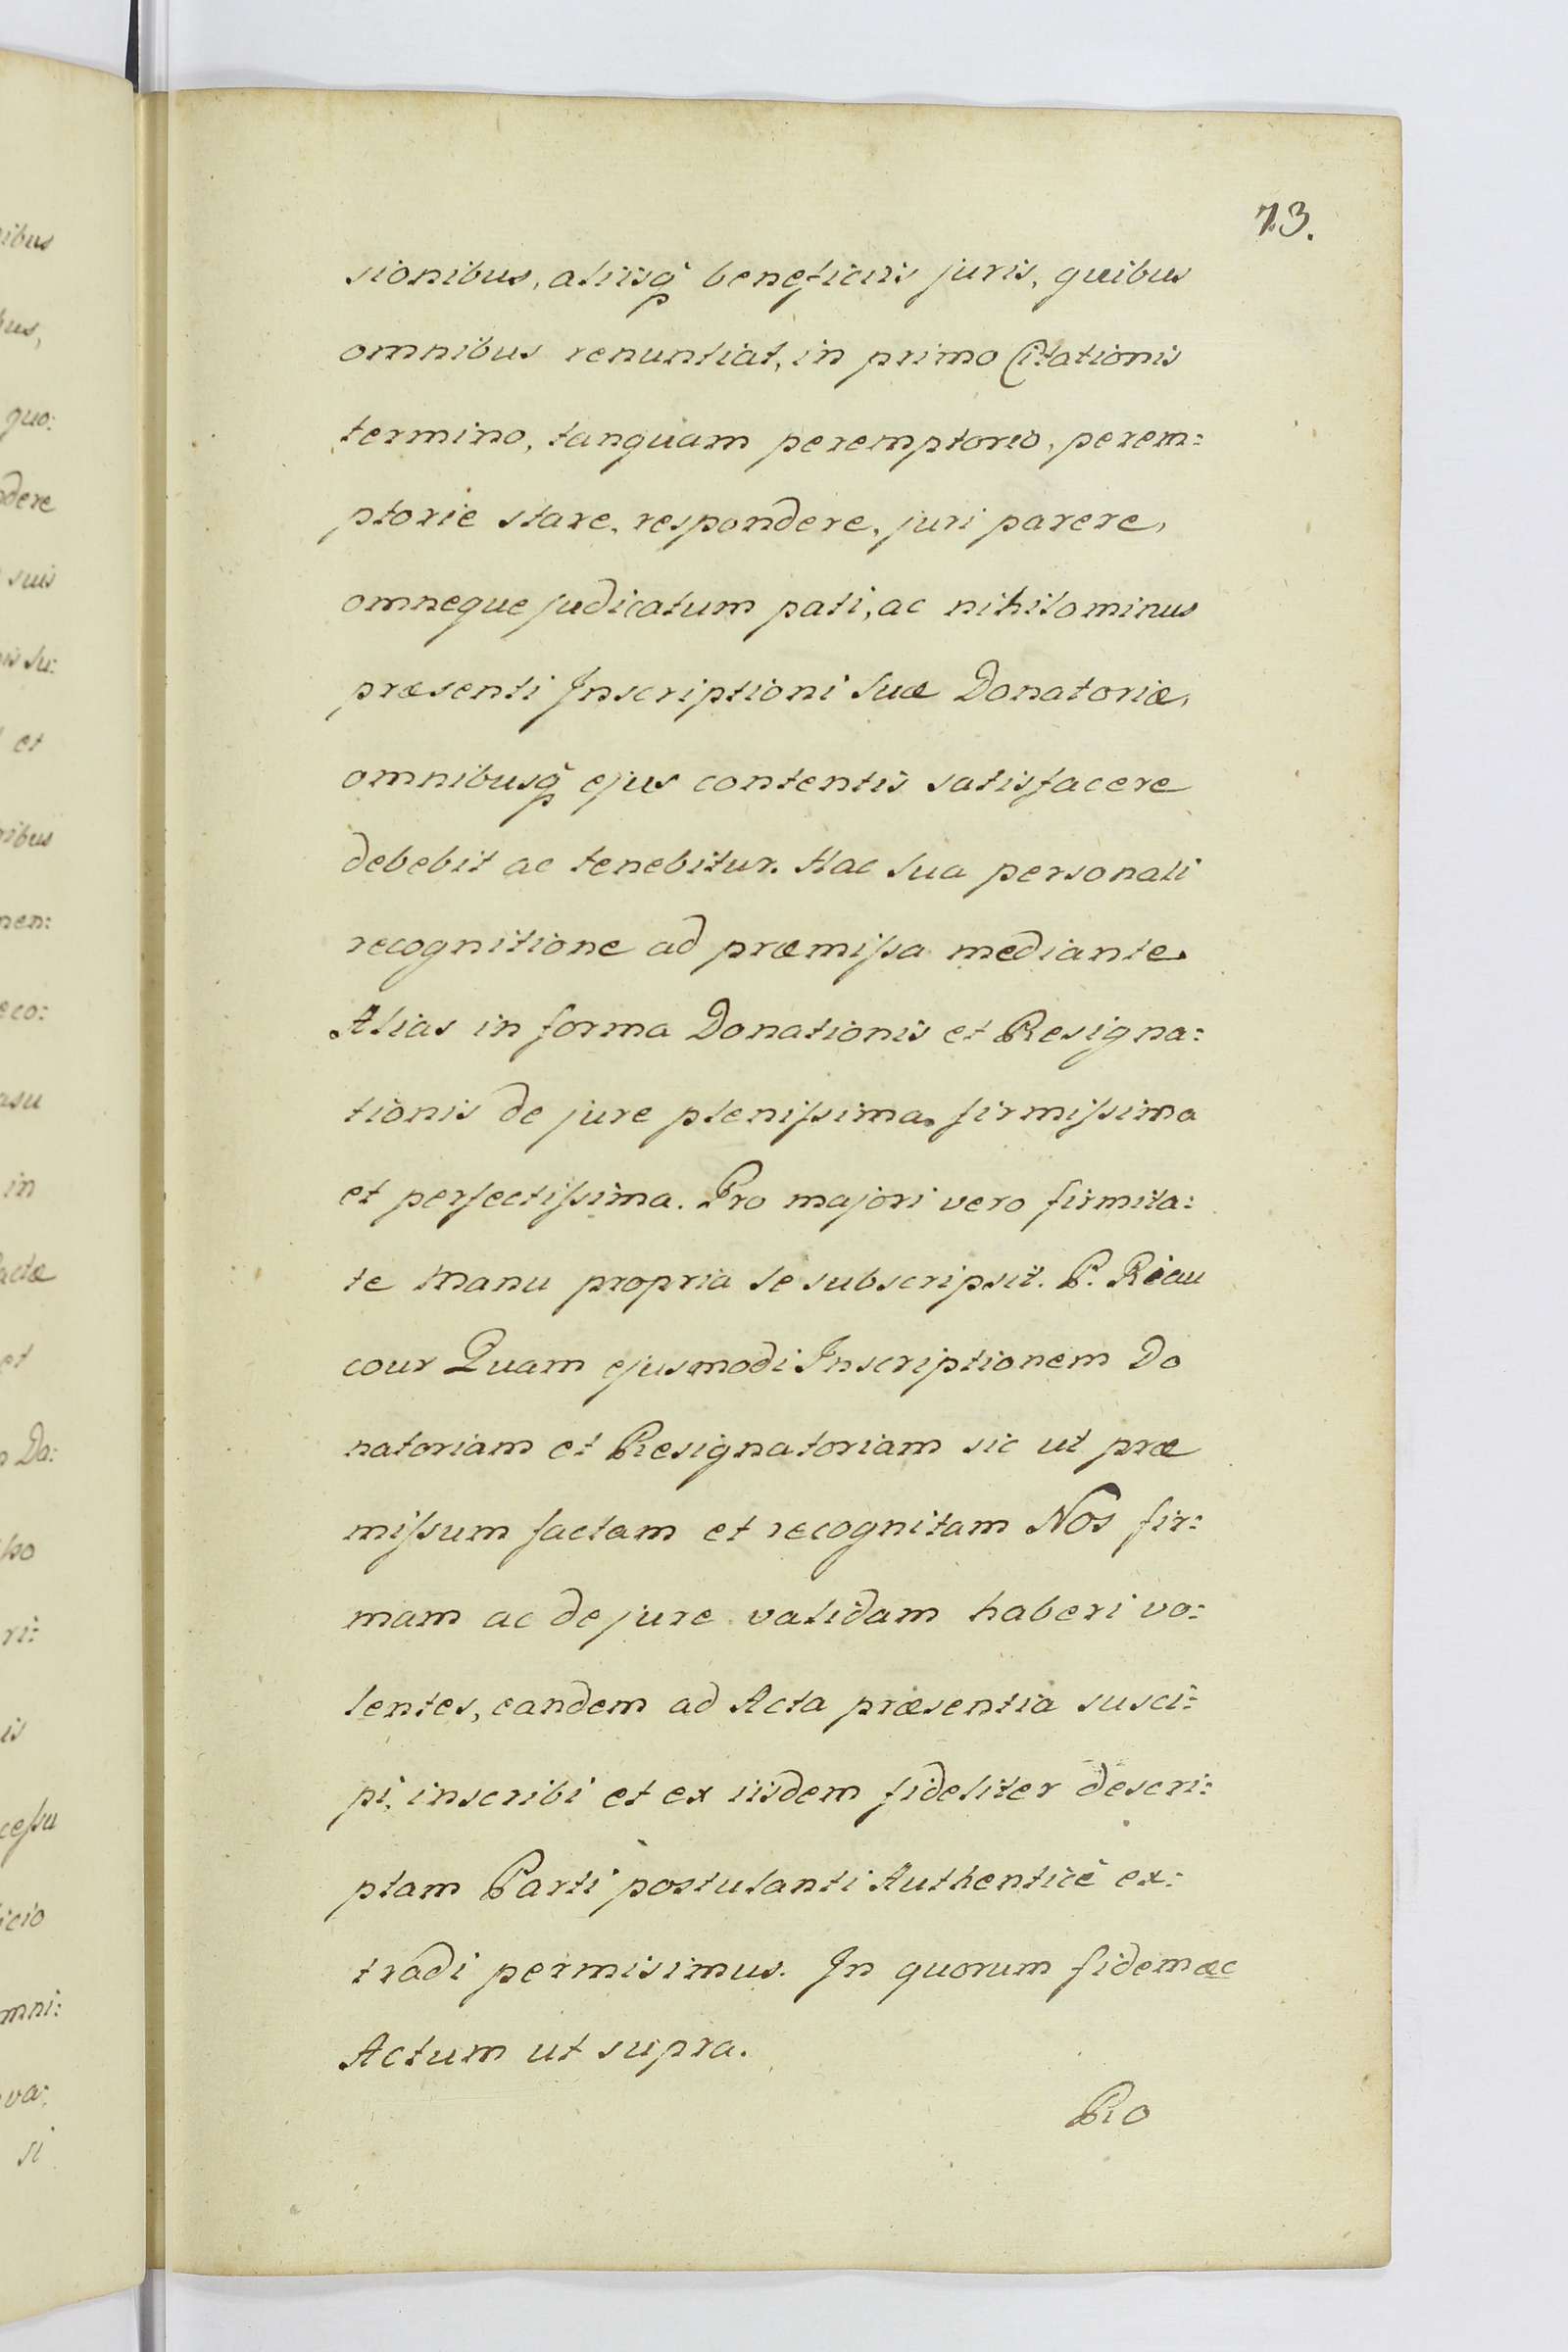 73.
sionibus, aliisq̃ beneficiis juris, quibus
omnibus renuntiat, in primo Citationis
termino, tanquam peremptorio, perem:
ptorie stare, respondere, juri parere,
omneque judicatum pati, ac nihilominus
præsenti Inscriptioni Suæ Donatoriæ,
omnibusq̃ ejus contentis satisfacere
debebit ac tenebitur. Hac Sua personali
recognitione ad præmiſsa mediante.
Alias in forma Donationis et Resigna:
tionis de jure pleniſsima, firmiſsima
et perfectiſsima. Pro majori vero firmita:
te manu propria se subscripsit. P. Riau
cour Quam ejusmodi Inscriptionem Do
natoriam et Resignatoriam sic ut præ
miſsum factam et recognitam Nos fir:
mam ac de jure validam haberi vo:
lentes, eandem ad Acta præsentia susci:
pi, inscribi et ex iisdem fideliter descri:
ptam Parti postulanti Authenticè ex:
tradi permisimus. In quorum fidem æc
Actum ut supra.
Pro
ibus
quo:
dere
suis
su:
et
ibus
men:
eco:
asu
in
et
Do:
ri:
is
ceſsu
icio
mni:
va:
si